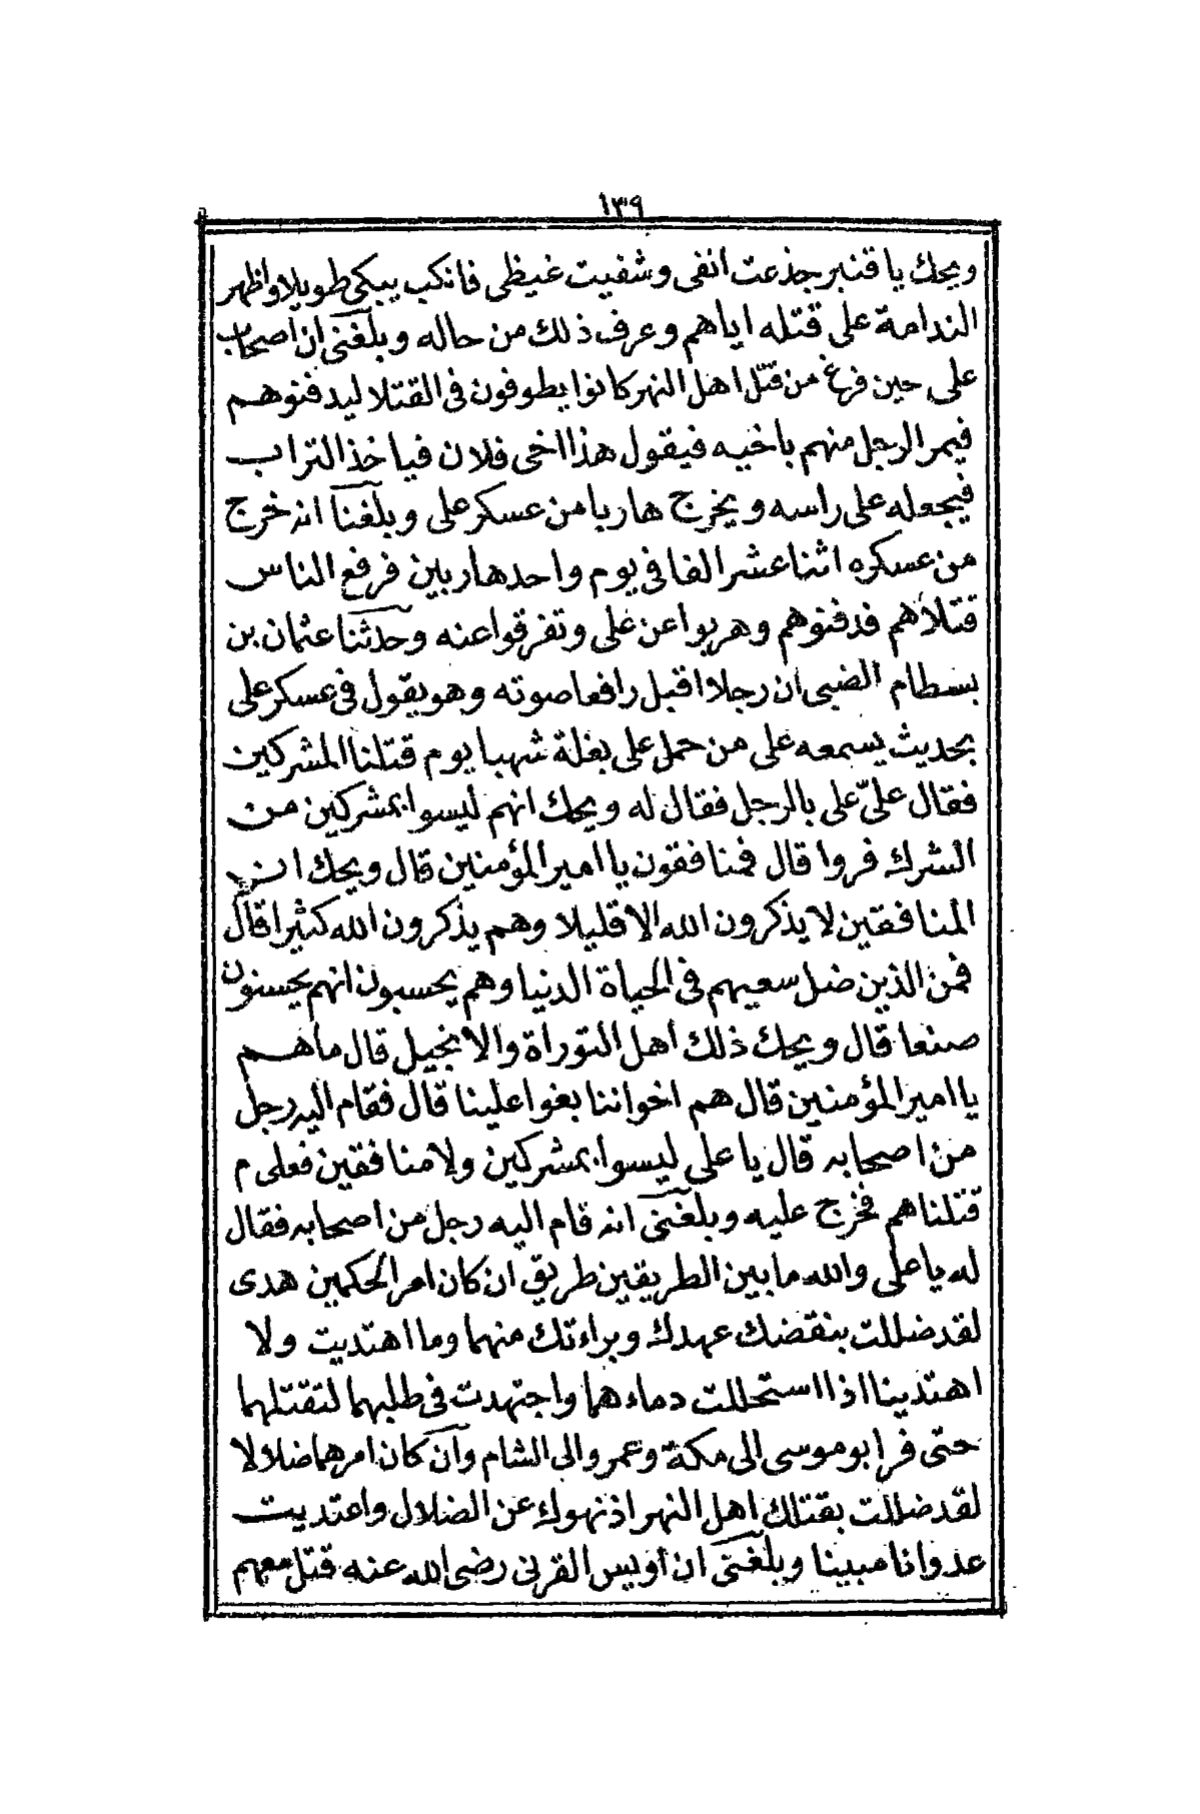 ١٣٩
ويحك يا قنبر جذعت انفى وشفيت غيظى فانكب يبكى طويلا واظهر
الندامة على قتله اياهم وعرف ذلك من حاله وبلغنى ان اصحاب
على حين فرغ من قتل اهل النهر كانوا يطوفون فى القتلا ليدفنوهم
فيمر الرجل منهم باخيه فيقول هذا اخى فلان فياخذ التراب
فيجعله على راسه ويخرج هاربا من عسكر على وبلغنا انه خرج
من عسكره اثنا عشر الفا فى يوم واحد هاربين فرفع الناس
قتلاهم فدفنوهم وهربوا عن على وتفرقوا عنه وحدثنا عثمان بن
بسطام الضبى ان رجلا اقبل رافعا صوته وهو يقول فى عسكر على
بحديث يسمعه على من حمل على بغلة شهبا يوم قتلنا المشركين
فقال علىّ على بالرجل فقال له ويحك انهم ليسوا بمشركين من
الشرك فروا قال فمنافقون يا امير المؤمنين قال ويحك ان
المنافقين لا يذكرون الله الا قليلا وهم يذكرون الله كثيرا قال
فمن الذين ضل سعيهم فى الحياة الدنيا وهم يحسبون انهم يحسنون
صنعا قال ويحك ذلك اهل التوراة والانجيل قال ما هم
يا امير المؤمنين قال هم اخواننا بغوا علينا قال فقام اليه رجل
من اصحابه قال يا على ليسوا بمشركين ولا منافقين فعلى م
قتلناهم فخرج عليه وبلغنى انه قام اليه رجل من اصحابه فقال
له يا على والله ما بين الطريقين طريق ان كان امر الحكمين هدى
لقد ضللت بنقضك عهدك وبراءتك منهما وما اهتديت ولا
اهتدينا اذا استحللت دماءهما واجتهدت فى طلبهما لتقتلهما
حتى فر ابو موسى الى مكة وعمرو الى الشام وان كان امرهما ضلالا
لقد ضللت بقتلك اهل النهر اذ نهوك عن الضلال واعتديت
عدوانا مبينا وبلغنى ان اويس القرنى رضى الله عنه قتل معهم